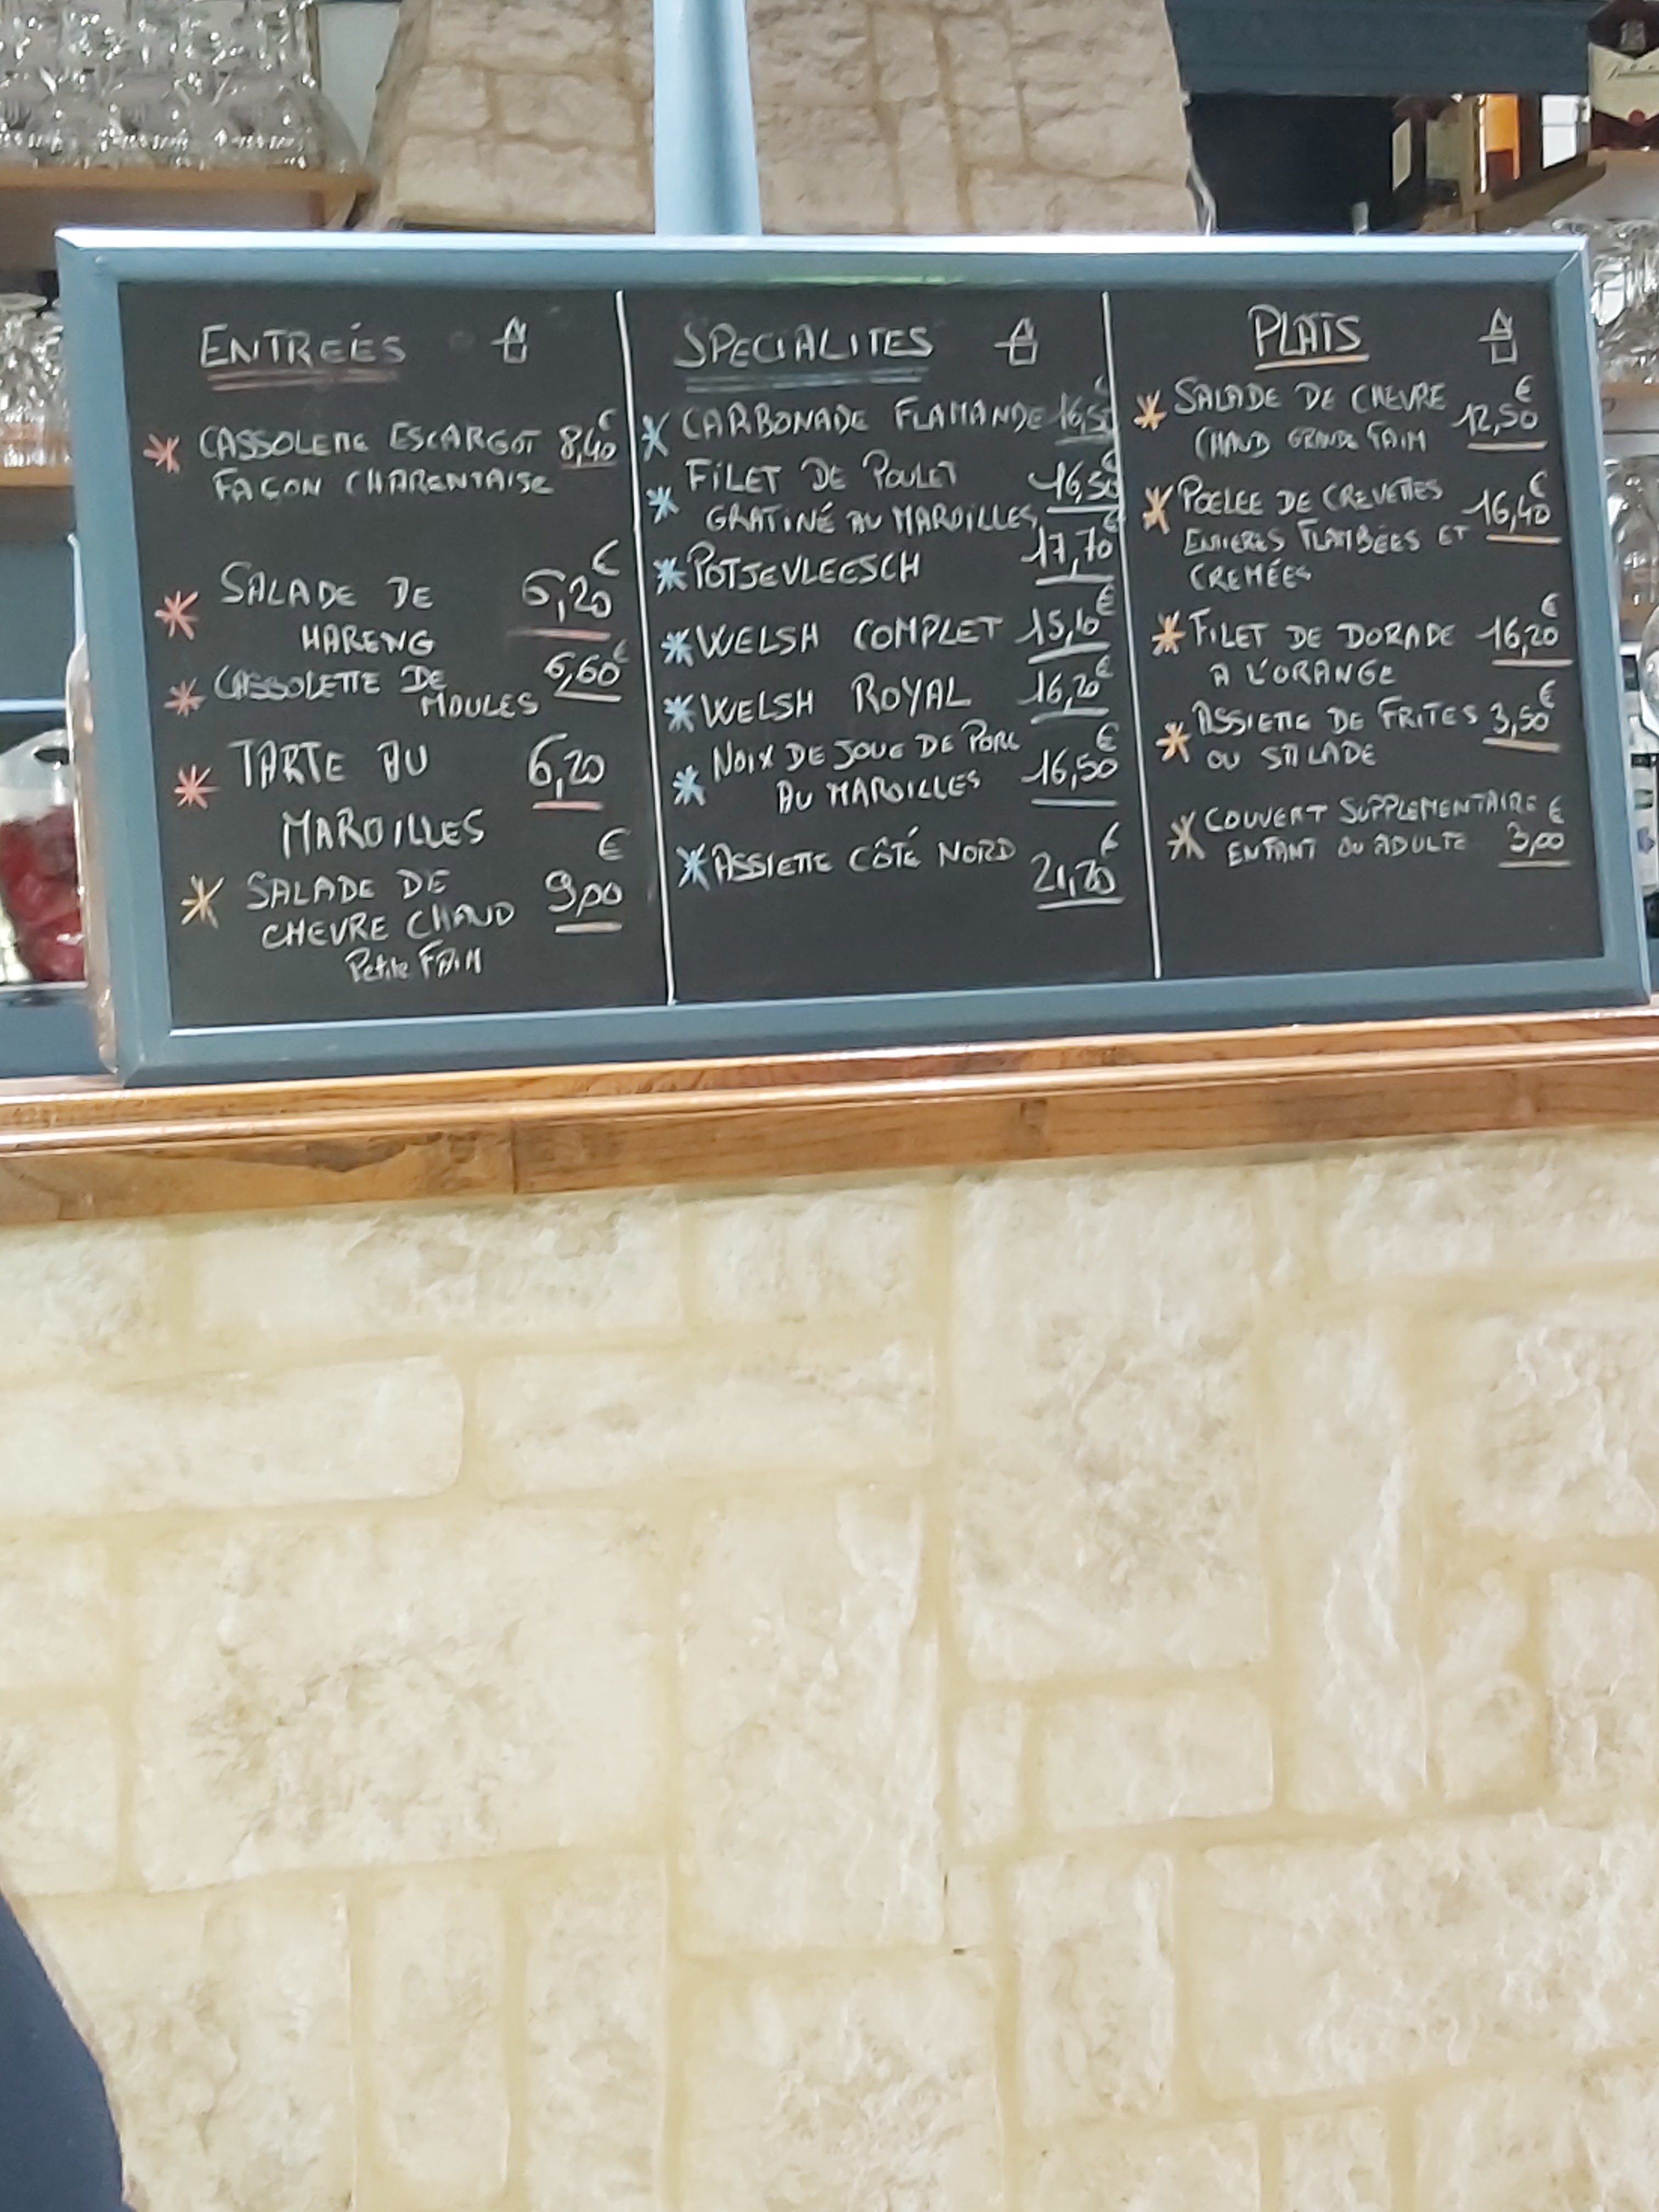 ENTREÉS
CASSOLETTE ESCARGOT 8,40€
FAÇON CHARENTAISE
SALADE DE 6,20€
HARENG
CASSOLETTE DE 6,60€
MOULES
TARTE AU 6,20
MAROILLES €
SALADE DE 9,00
CHEVRE CHAUD
Petite FAIM
SPECIALITES
CARBONADE FLAMANDE 16,50€
FILET DE POULET 16,50€
GRATINÉ AU MAROILLES
POTJEVLEESCH 17,70€
WELSH COMPLET 15,10€
WELSH ROYAL 16,20€
NOIX DE JOUE DE PORC €
AU MAROILLES 16,50
ASSIETTE CÔTÉ NORD €
21,70
PLATS
SALADE DE CHEVRE €
CHAUD GRANDE FAIM 12,50
POELEE DE CREVETTES 16,40€
ENTIERES FLAMBÉES ET
CREMÉES
FILET DE DORADE 16,20€
A L'ORANGE
ASSIETTE DE FRITES 3,50€
OU SALADE
COUVERT SUPPLEMENTAIRE €
ENFANT OU ADULTE 3,00